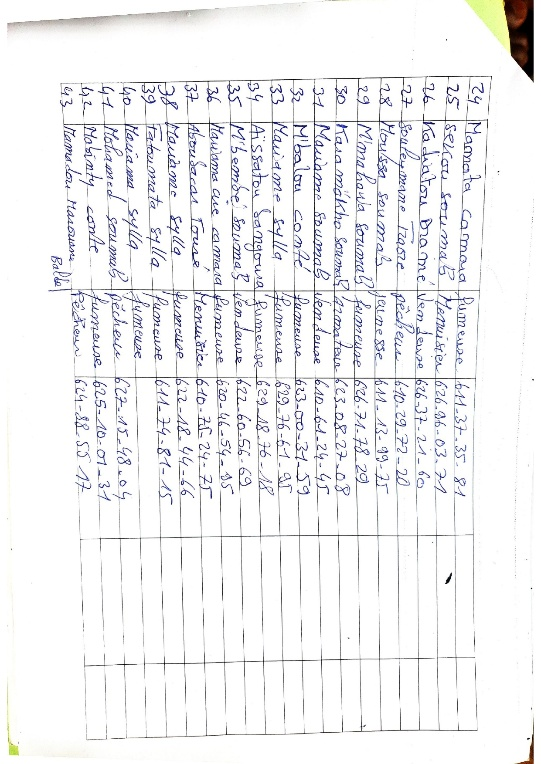 24 Mamata Camara fumeuse 611-37-35-81
25 Sekou soumah Menuisier 626-96-03-71
26 Kadiatou Dramé Vendeuse 626-37-21-60
27 Souleymane Traoré pêcheur 610-29-72-20
28 Moussa soumah Jeunesse 611-13-99-75
29 M'mahawa soumah fumeuse 626-71-78-29
30 Karamokho soumah armateur 623-08-27-08
31 Mariame soumah Vendeuse 610-61-24-45
32 M'balou conté fumeuse 623-00-31-59
33 Mariame sylla fumeuse 629-76-61-95
34 Aissatou bangoura fumeuse 629-18-76-18
35 M'bembé soumah Vendeuse 622-60-56-69
36 Mariame ciré camara fumeuse 620-46-54-95
37 Aboubacar Touré Menuisier 610-75-24-75
38 Mariame sylla fumeuse 622-18-44-66
39 Fatoumata sylla fumeuse 611-74-81-15
40 Mariama sylla fumeuse
41 Mohamed soumah pêcheur 627-15-48-04
42 Mabinty conte fumeuse 625-10-01-31
43 Mamadou Baldé pêcheur 624-88-55-17